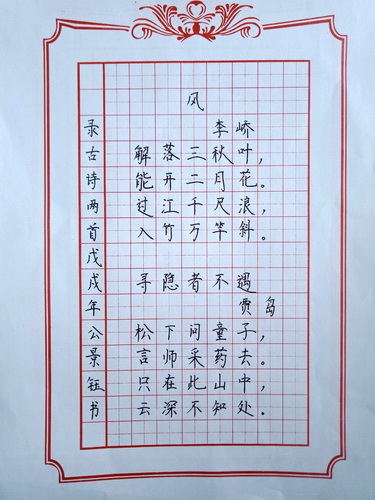 风
李峤
解落三秋叶，
能开二月花。
过江千尺浪，
入竹万竿斜。
寻隐者不遇
贾岛
松下问童子，
言师采药去。
只在此山中，
云深不知处。
录古诗两首戊戌年公景钰书